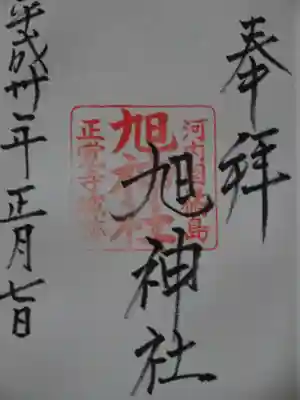 奉拝
旭神社
平成卅一年正月七日
河内國橘島
旭神社
正覚寺